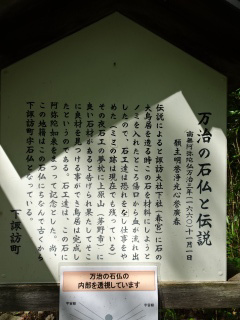 万治の石仏と伝説
南無阿弥陀仏万治三年(一六六〇)十一月一日
願主明誉浄光心誉廣春
伝説によると諏訪大社下社(春宮)に石の
大鳥居を造る時この石を材料にしようと
ノミを入れたところ傷口から血が流れ出
したので、石工達は恐れをなし仕事をや
めた(ノミの跡は現在でも残っている)
その夜石工の夢枕に上原山(茅野市)に
良い石材があると告げられ果たしてそこ
に良材を見つける事ができ鳥居は完成し
たというのである。石工達は、この石に
阿弥陀如来をまつって記念とした。尚、
この地籍はこの石仏にちなんで古くから
下諏訪町字石仏となっている。
下諏訪町
万治の石仏の
内部を透視しています